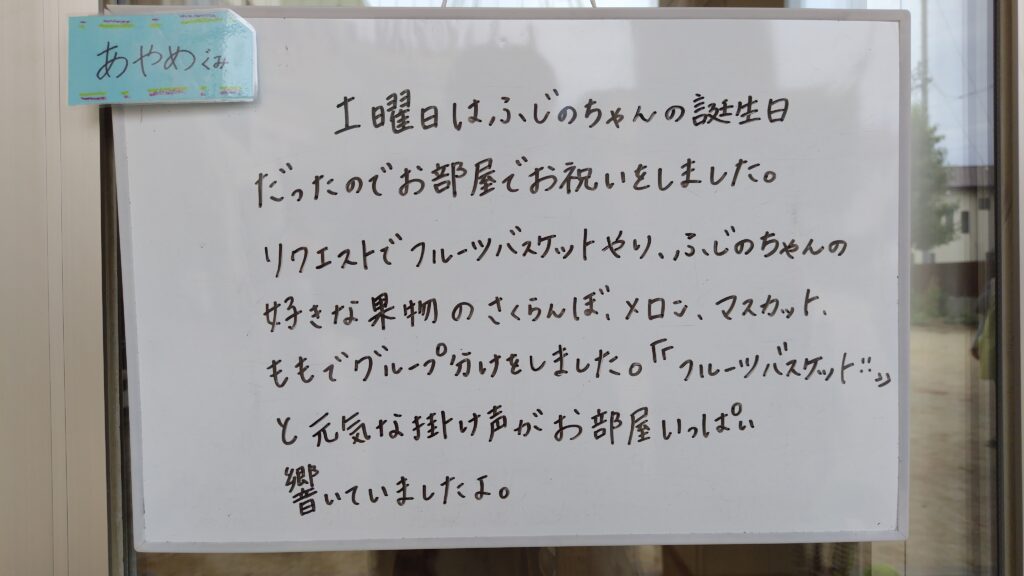 あやめぐみ
土曜日はふじのちゃんの誕生日
だったのでお部屋でお祝いをしました。
リクエストでフルーツバスケットやり、ふじのちゃんの
好きな果物のさくらんぼ、メロン、マスカット、
ももでグループ分けをしました。『フルーツバスケット!!』
と元気な掛け声がお部屋いっぱい
響いていましたよ。